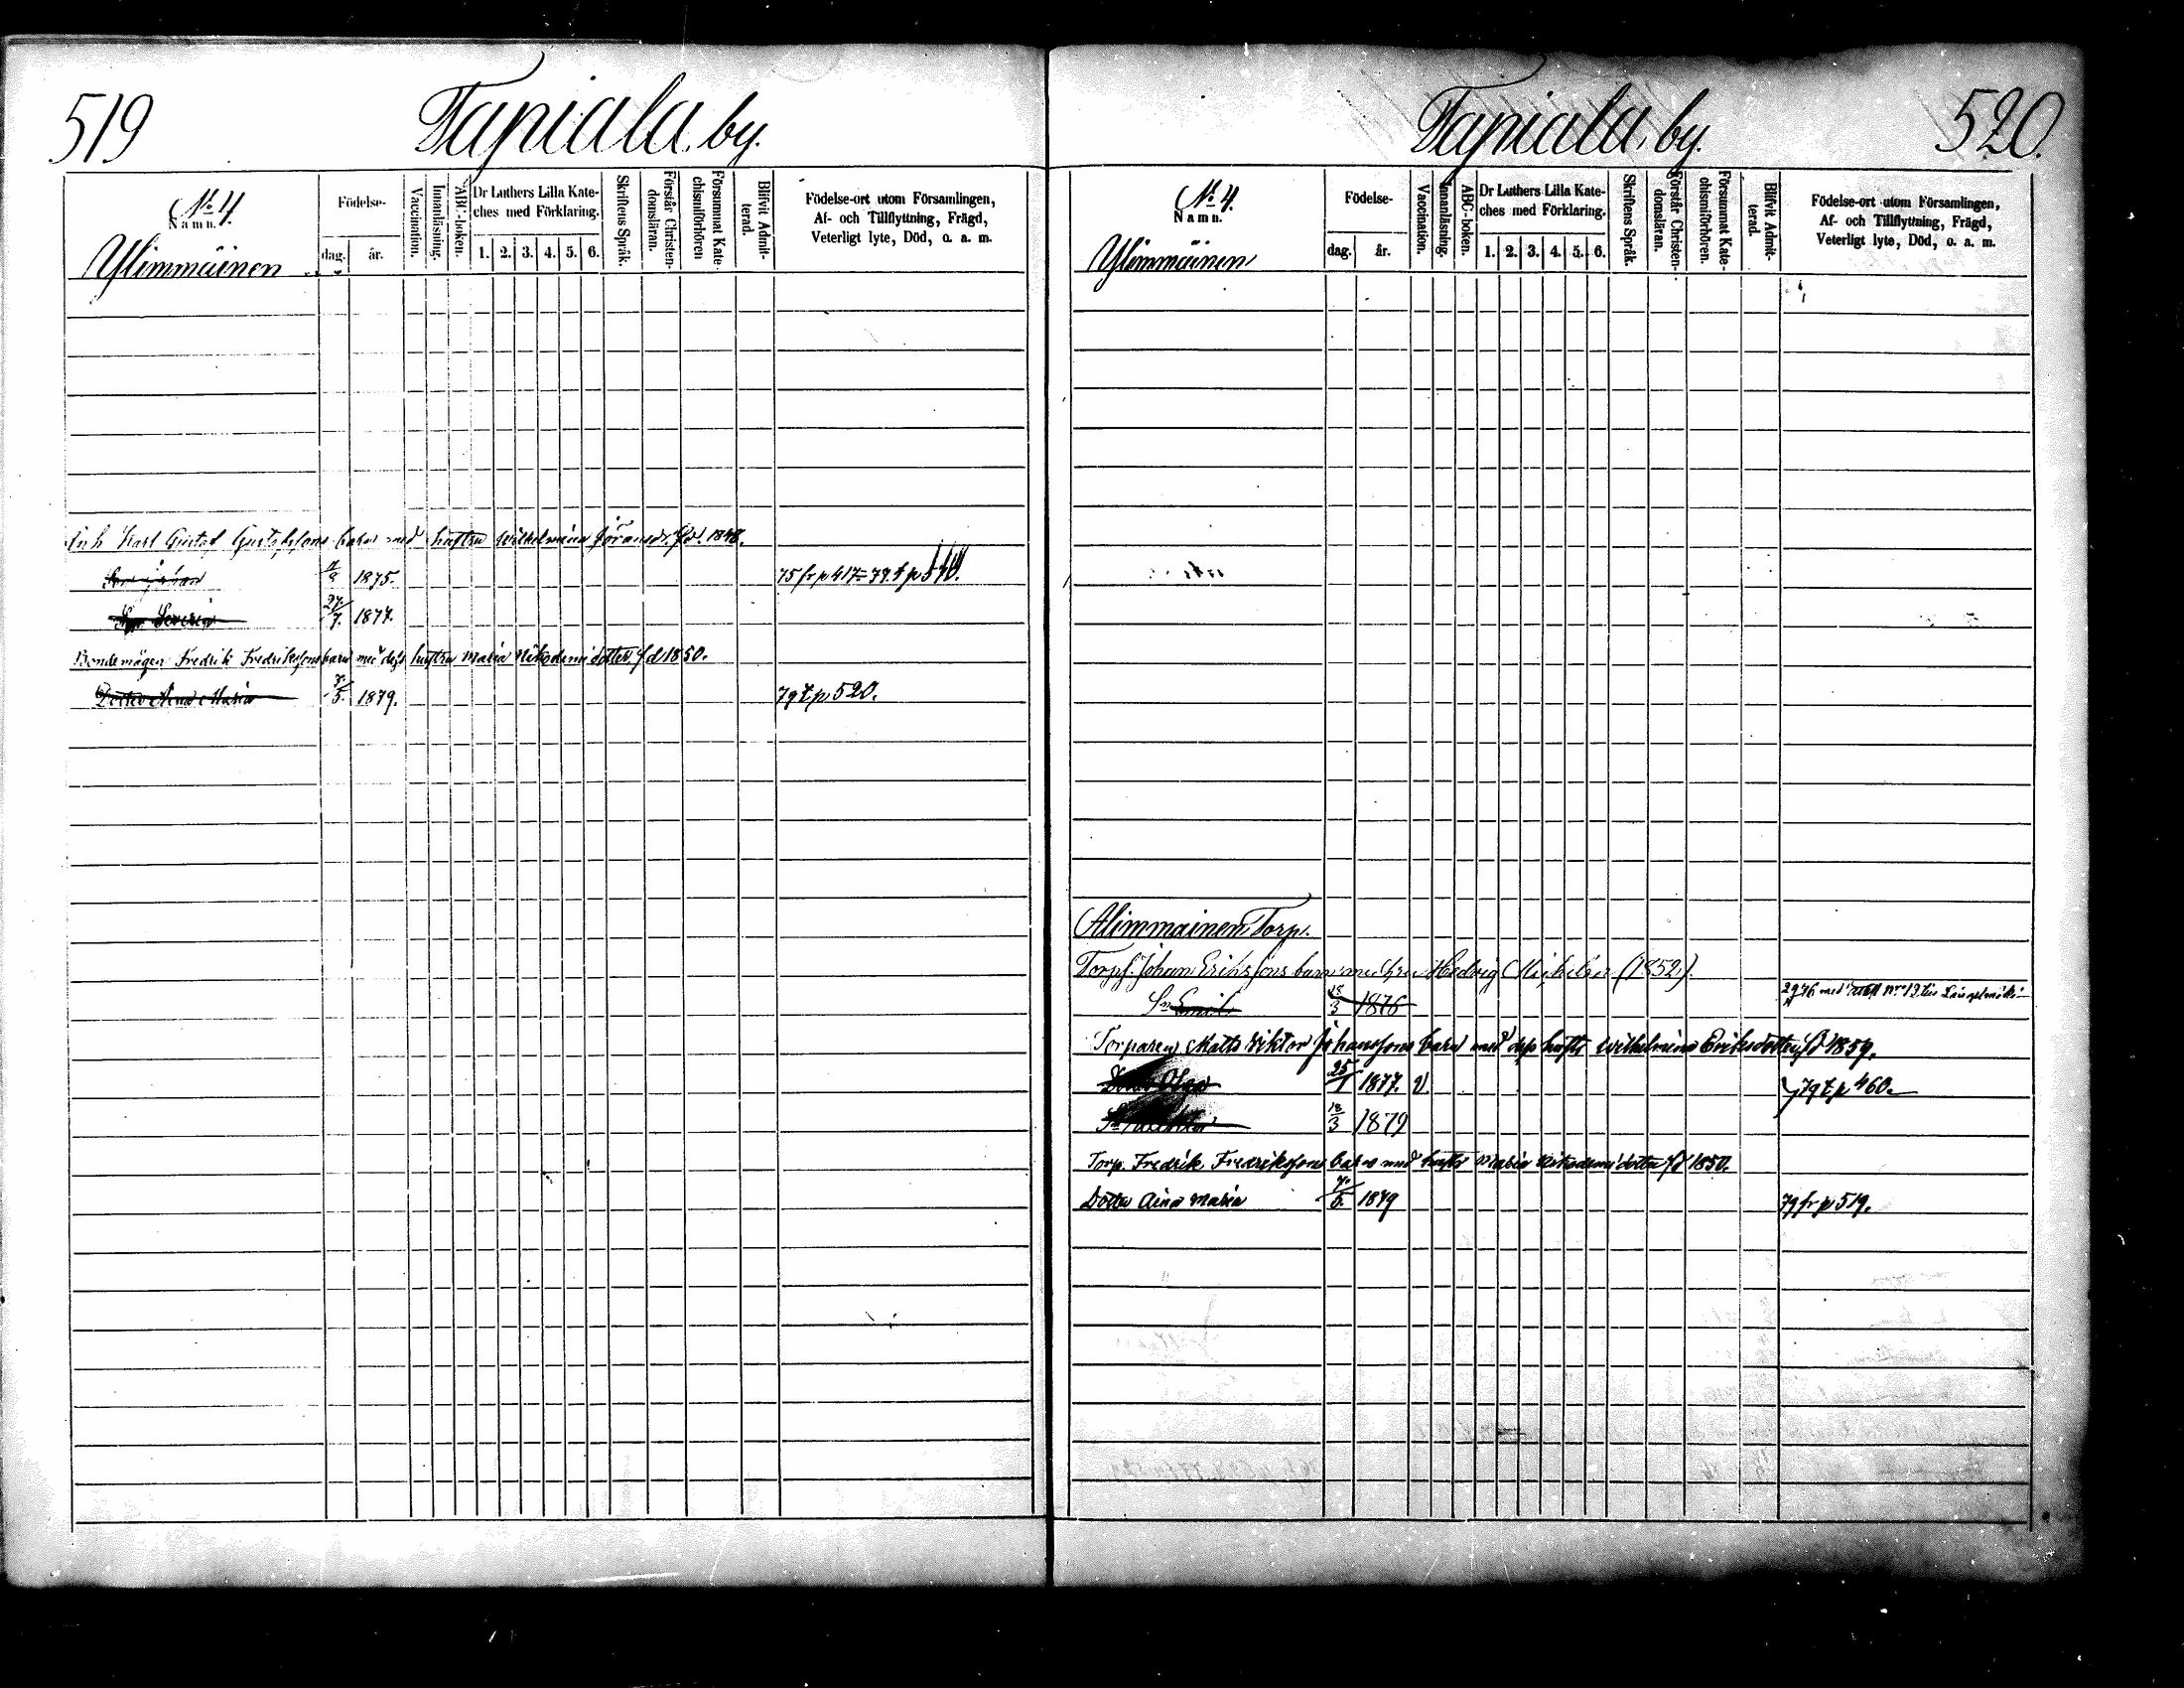 519
Tapiala by.
No 4.
Namn.
Ylimmäinen
Födelse-
dag.
år.
Vaccination.
Innanläsning.
ABC-boken.
Dr Luthers Lilla Kate-
ches med Förklaring.
1. 2. 3. 4. 5. 6.
Skriftens Språk.
Förstår Christen-
domsläran.
Försummat Kate-
chismiförhören
Blifvit Admit-
terad.
Födelse-ort utom Församlingen,
Af- och Tillflyttning, Frägd,
Veterligt lyte, Död, o. a. m.
Inh Karl Gustaf Gustafssons barn med hustru Wilhelmina Göransdr. fd. 1848.
Son Göran 1875. 75 fr p 417 = 79. t p
Son Severin 27/7. 1877.
Bondemågen Fredrik Fredrikssons barn med dess hustru Maria Nikodemi dotter f d 1850.
Dotter Aina Maria 7/5. 1879. 79 t p 520.
520.
Tapiala by.
No 4.
Namn.
Ylimmäinen
Födelse-
dag.
år.
Vaccination.
Innanläsning.
ABC-boken.
Dr Luthers Lilla Kate-
ches med Förklaring.
1. 2. 3. 4. 5. 6.
Skriftens Språk.
Förstår Christen-
domsläran.
Försummat Kate-
chismiförhören.
Blifvit Admit-
terad.
Födelse-ort utom Församlingen,
Af- och Tillflyttning, Frägd,
Veterligt lyte, Död, o. a. m.
Alimmainen Torp.
Torp. Johan Erikssons barn med hru Hedvig (1852).
Sn Emil 18/3 1876 med No 12 till
Torparen Matts Viktor Johanssons barn med dess hustr Wilhelmina Eriksdotter f d 1859.
Dotter Olga 25/1 1877. v. 79 t p 460.
Sn 18/3 1879
Torp. Fredrik Fredrikssons barn med hustr Maria Nikodemi dotter f d 1850.
Dotter Aina Maria 7/5. 1879 79 fr p 519.